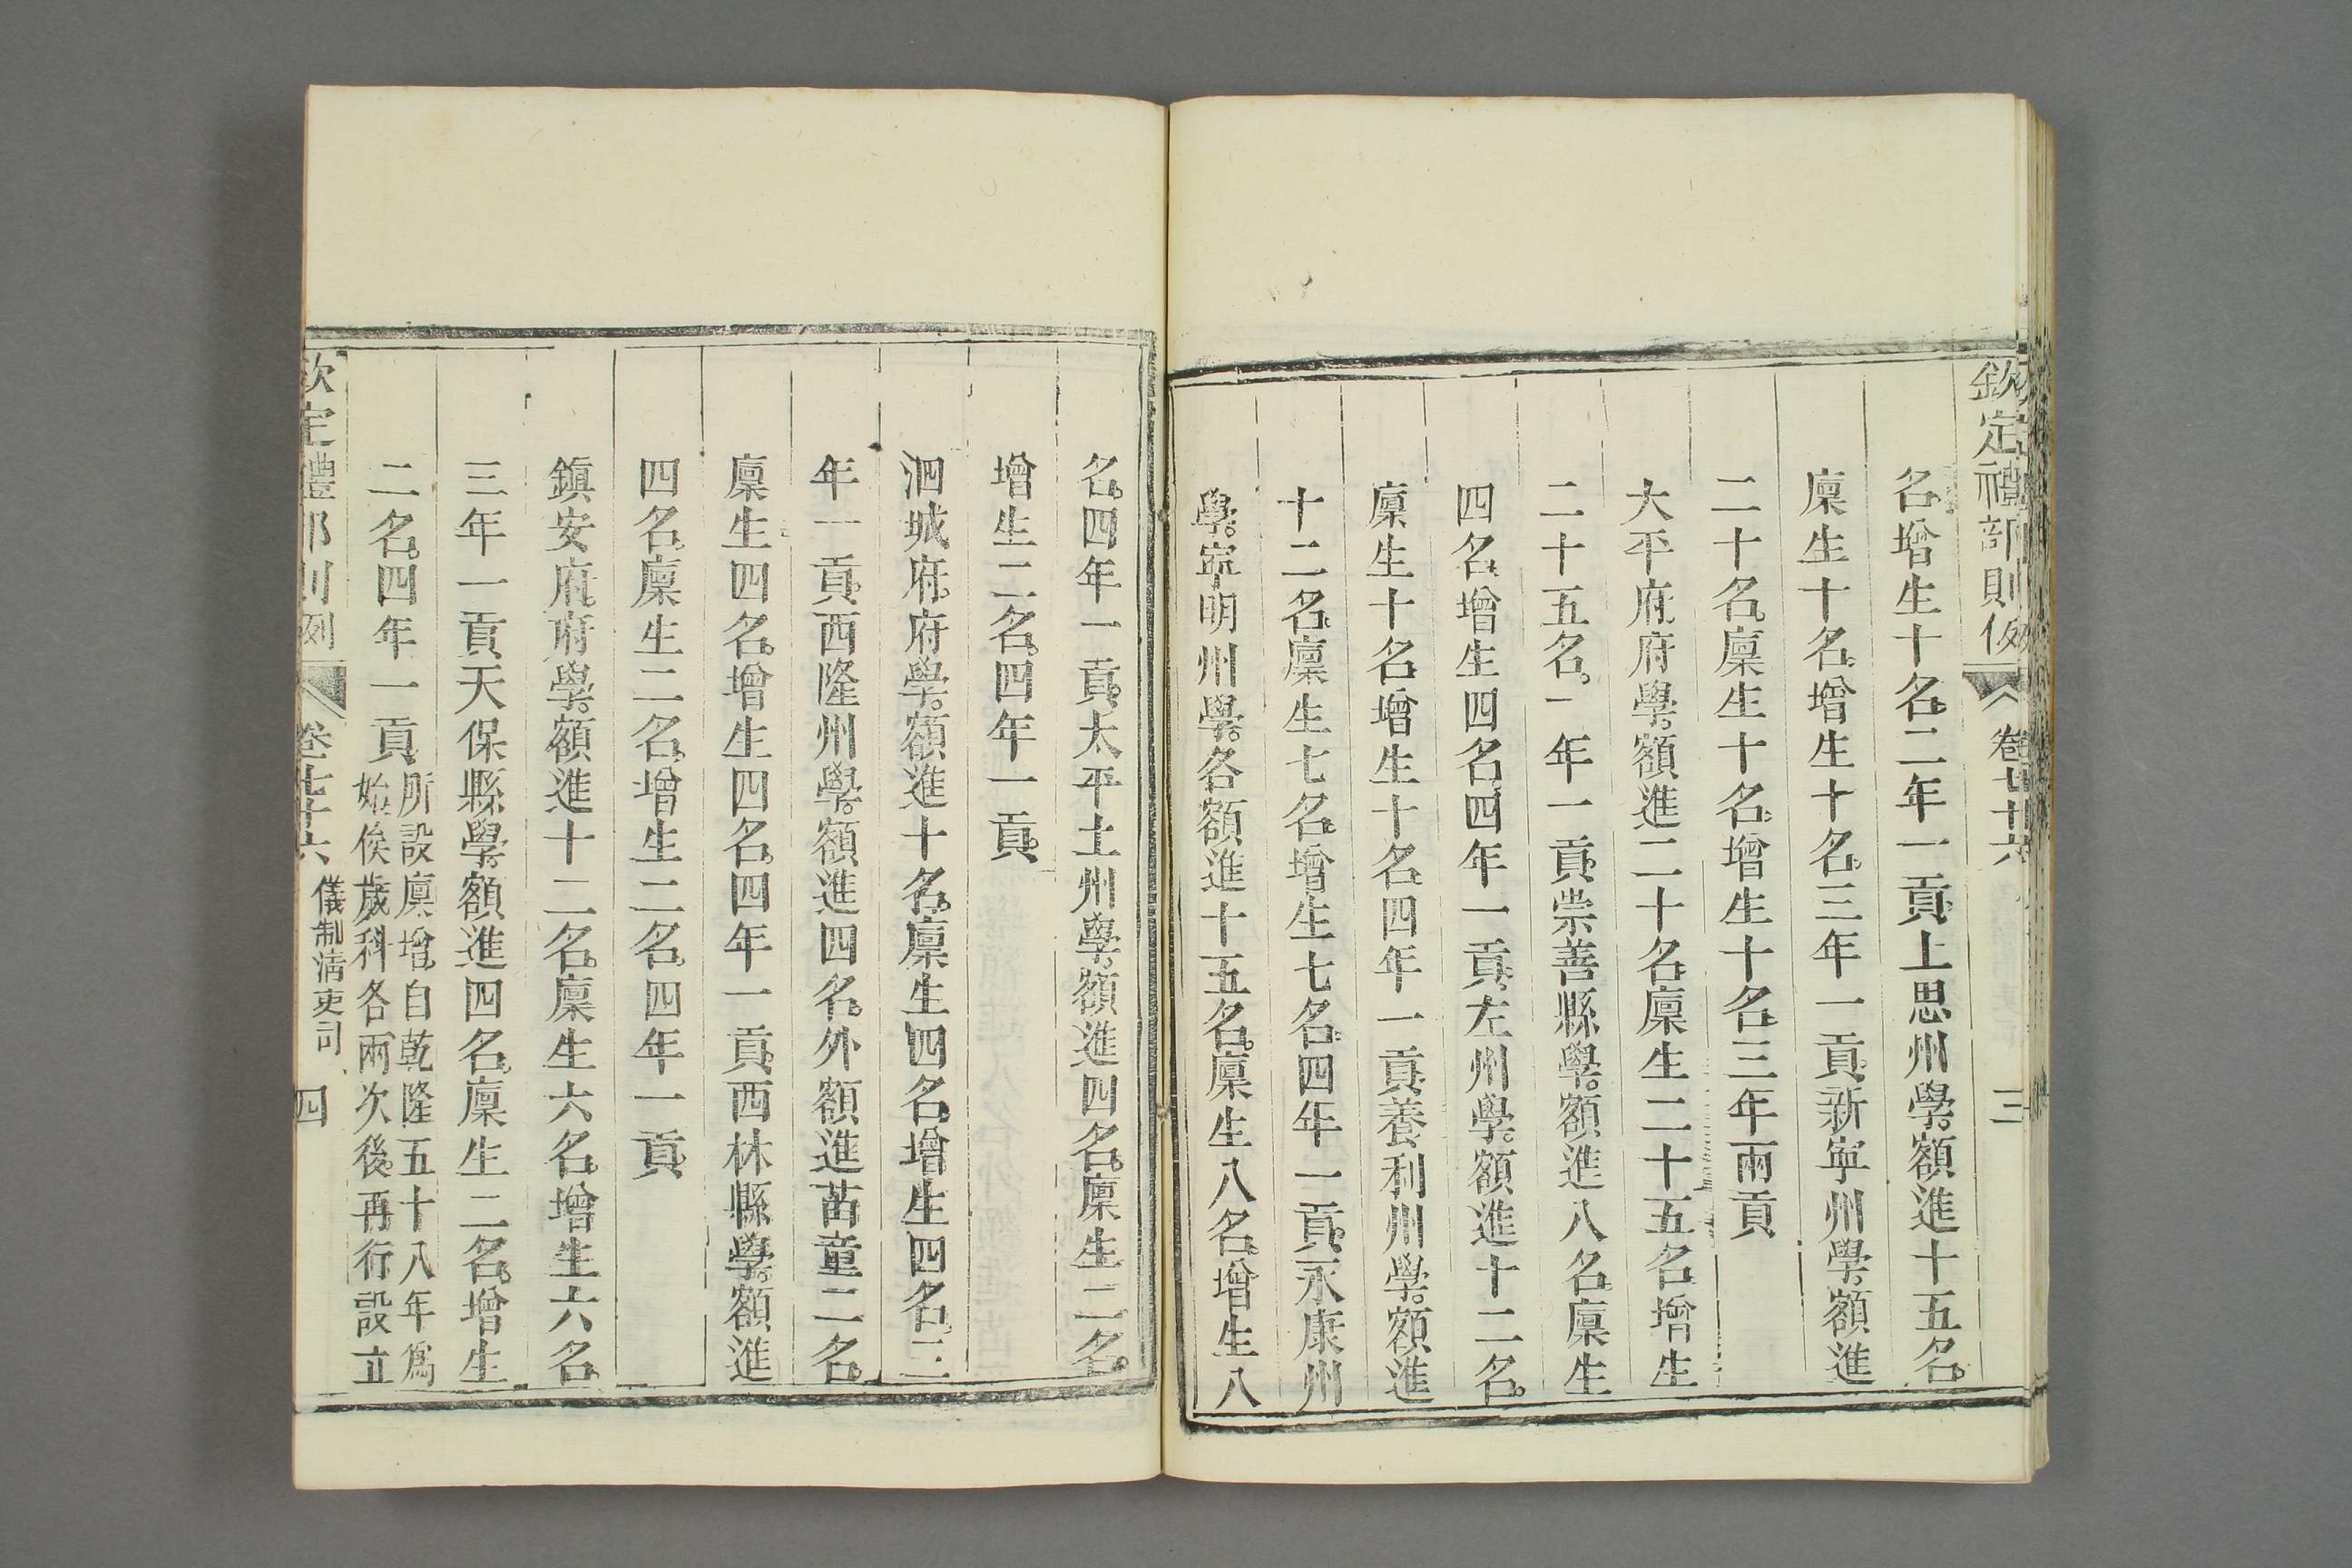 欽定禮部則例 卷七十六 三
名增生十名二年一貢上思州學額進十五名
廩生十名增生十名三年一貢新寧州學額進
二十名廩生十名增生十名三年兩貢
太平府府學額進二十名廩生二十五名增生
二十五名一年一貢崇善縣學額進八名廩生
四名增生四名四年一貢左州學額進十二名
廩生十名增生十名四年一貢養利州學額進
十二名廩生七名增生七名四年一貢永康州
學寧明州學各額進十五名廩生八名增生八
名四年一貢太平土州學額進四名廩生二名
增生二名四年一貢
泗城府府學額進十名廩生四名增生四名三
年一貢西隆州學額進四名外額進苗童二名
廩生四名增生四名四年一貢西林縣學額進
四名廩生二名增生二名四年一貢
鎮安府府學額進十二名廩生六名增生六名
三年一貢天保縣學額進四名廩生二名增生
二名四年一貢 所設廩增自乾隆五十八年為
始俟歲科各兩次後再行設立
欽定禮部則例 卷七十六 儀制清吏司 四